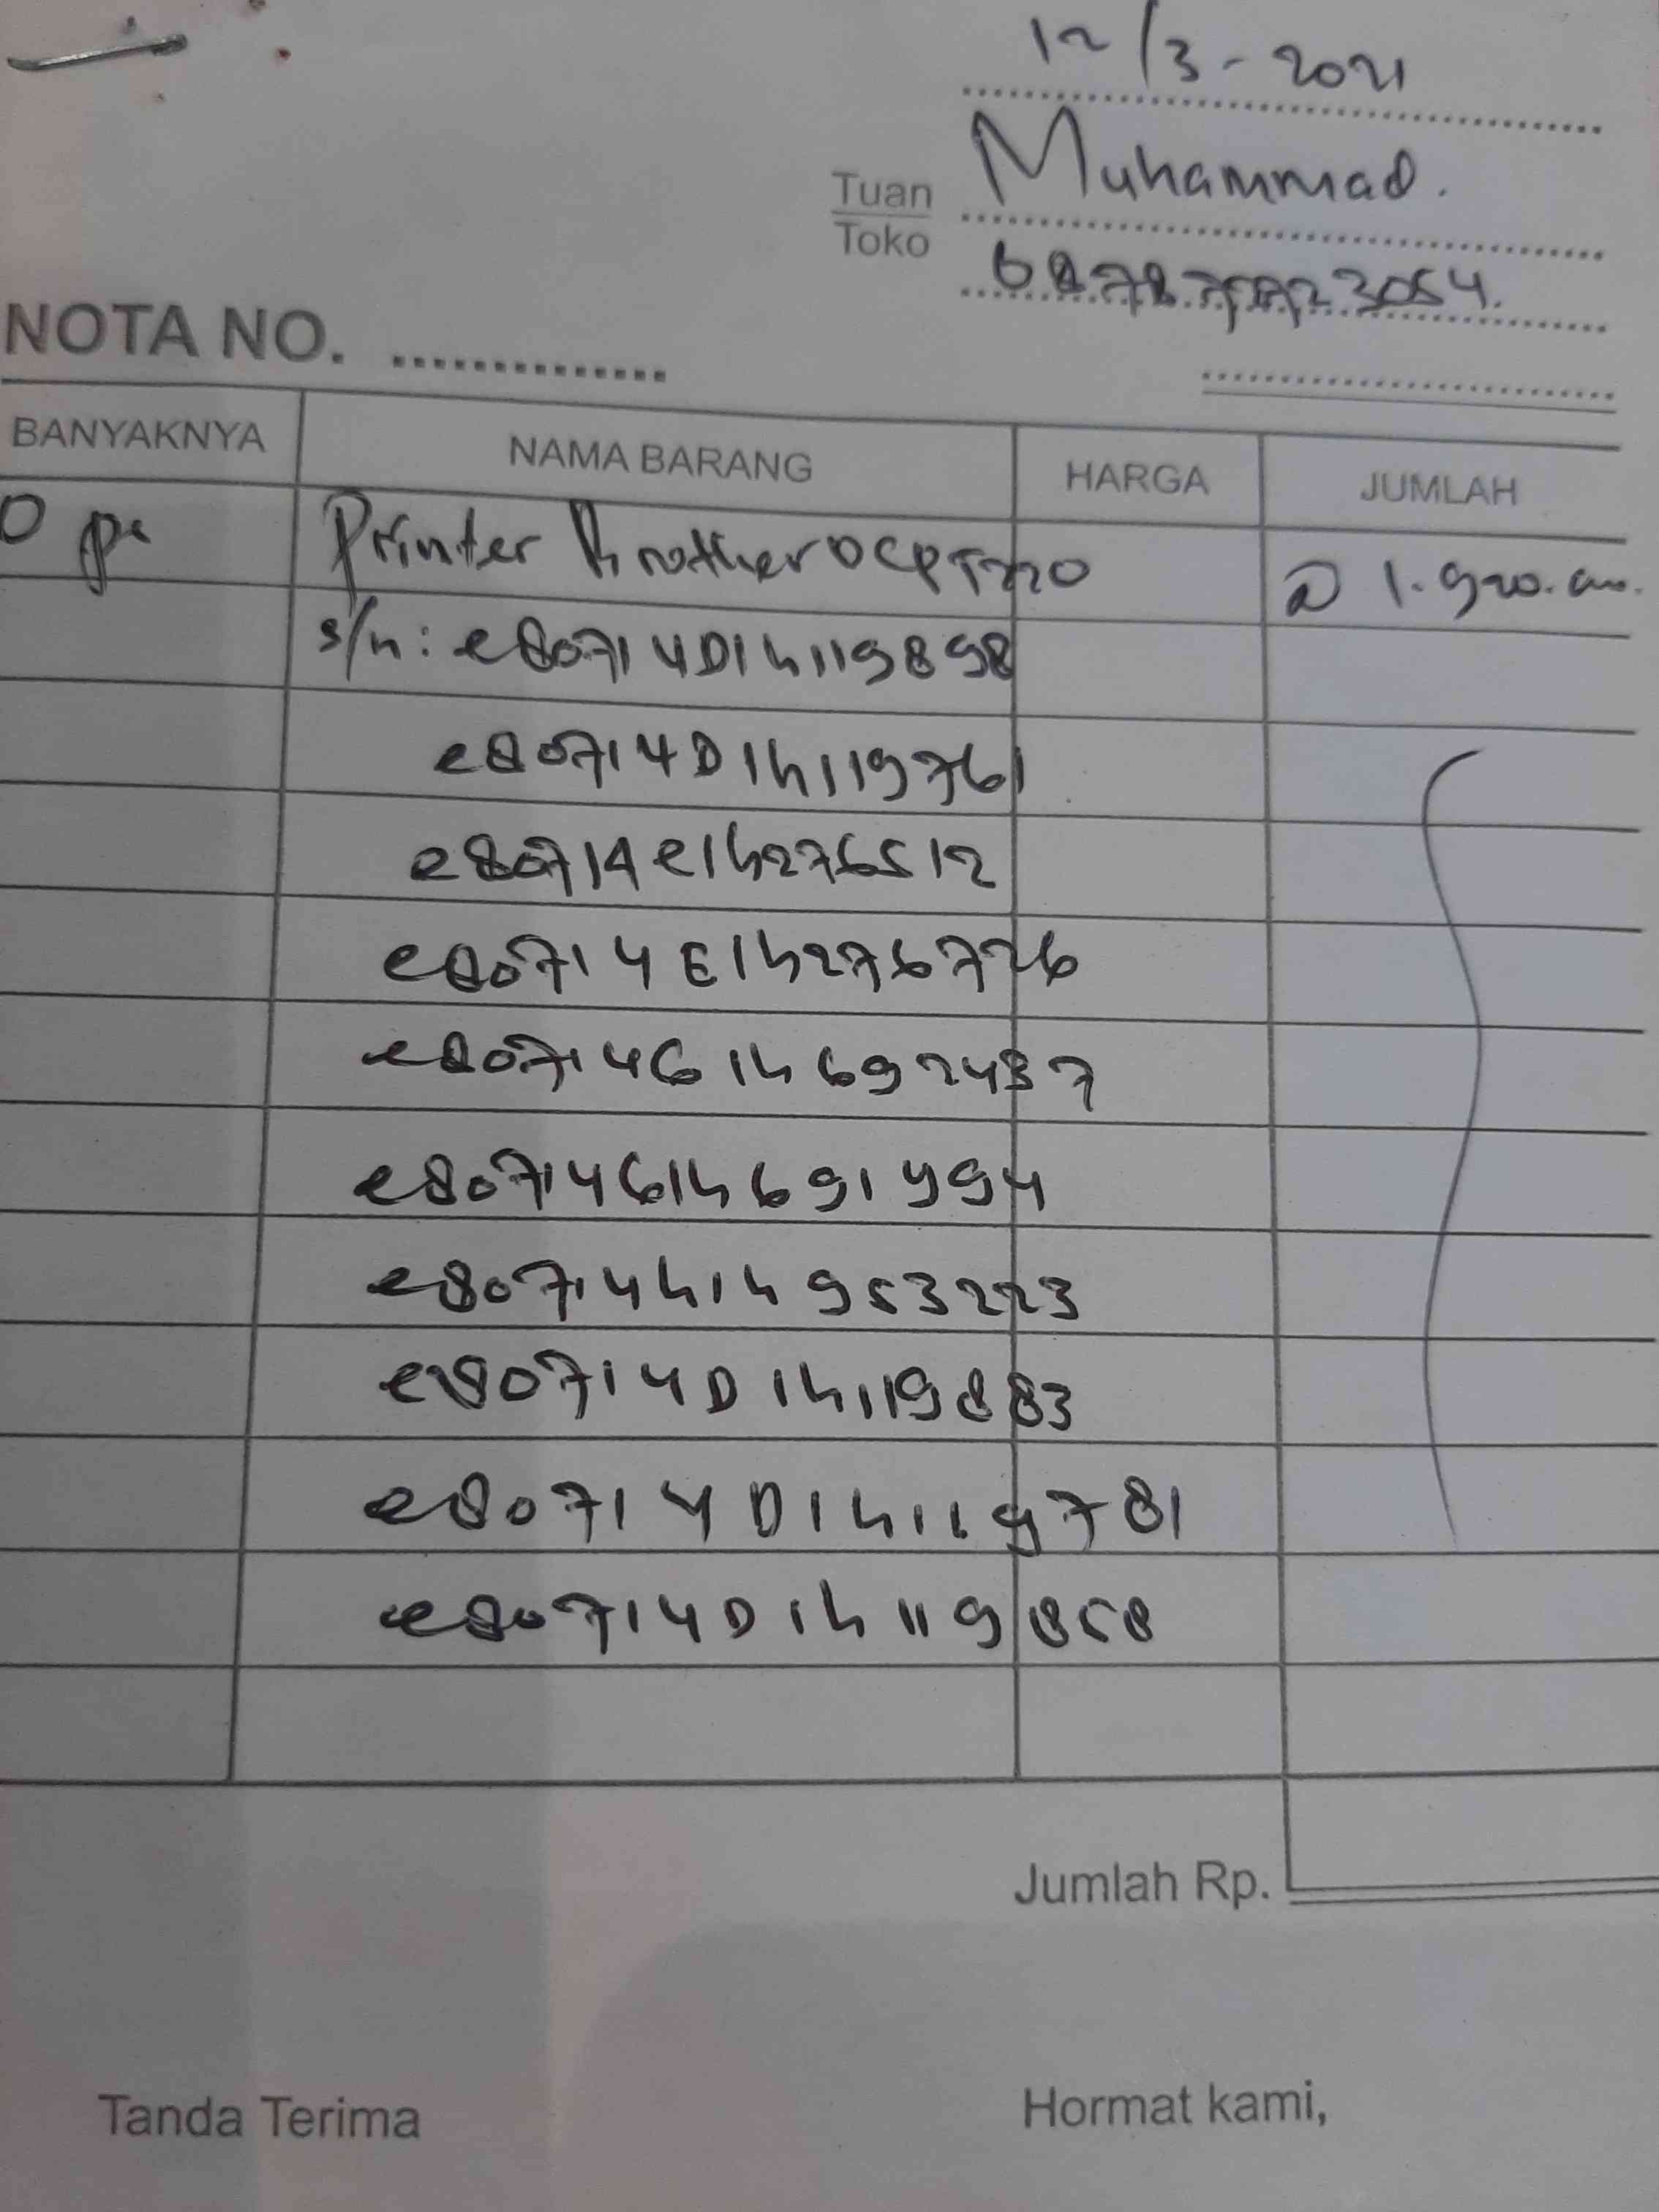 12/3-2021
Tuan Muhammad.
Toko
NOTA NO.
BANYAKNYA NAMA BARANG HARGA JUMLAH
0 pc Printer Brother DCPT720 @ 1.920.000.
s/n: e80714D1h119898
e80714D1h119761
e80714e1h276512
e80714E1h276726
e80714G1h692437
e80714G1h691994
e80714h1h953223
e80714D1h119883
e80714D1h119781
e80714D1h119858
Jumlah Rp.
Tanda Terima Hormat kami,